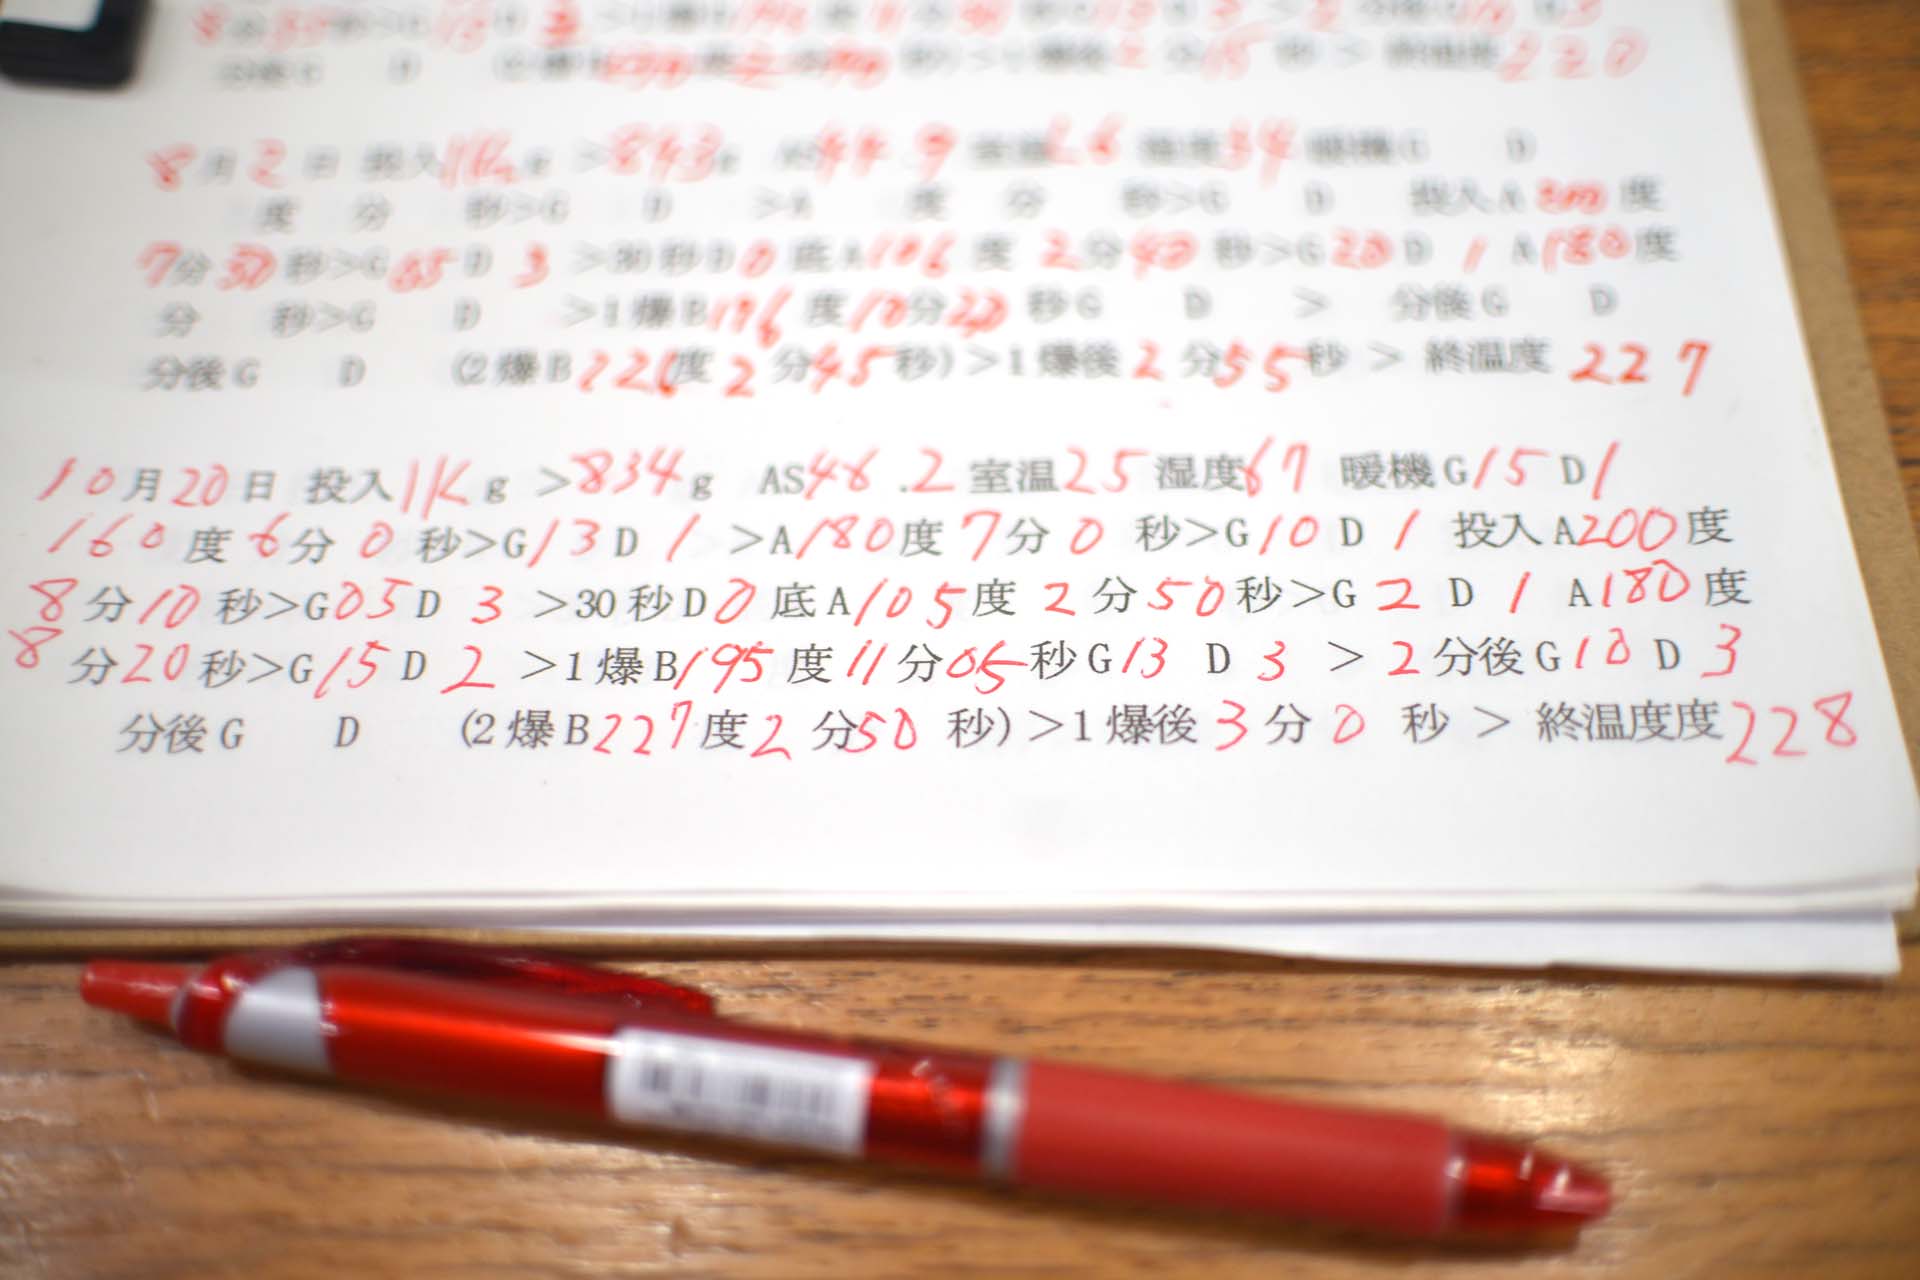 8月2日 投入1Kg >843g AS44.9 室温26 湿度34 暖機G D
度 分 秒>G D >A 度 分 秒>G D 投入A200度
7分50秒>G05 D 3 >30秒D0 底A106度 2分40秒>G20 D 1 A180度
分 秒>G D >1爆B196度10分20秒G D > 分後G D
分後G D (2爆B226度2分45秒)>1爆後2分55秒 > 終温度 227
10月20日 投入1Kg >834g AS46.2 室温25 湿度67 暖機G15 D1
160度6分0秒>G13 D 1 >A180度7分0秒>G10 D 1 投入A200度
8分10秒>G05 D 3 >30秒D0 底A105度 2分50秒>G 2 D 1 A180度
8分20秒>G15 D 2 >1爆B195度11分05秒G13 D 3 > 2分後G10 D 3
分後G D (2爆B227度2分50秒)>1爆後3分0秒 > 終温度度228